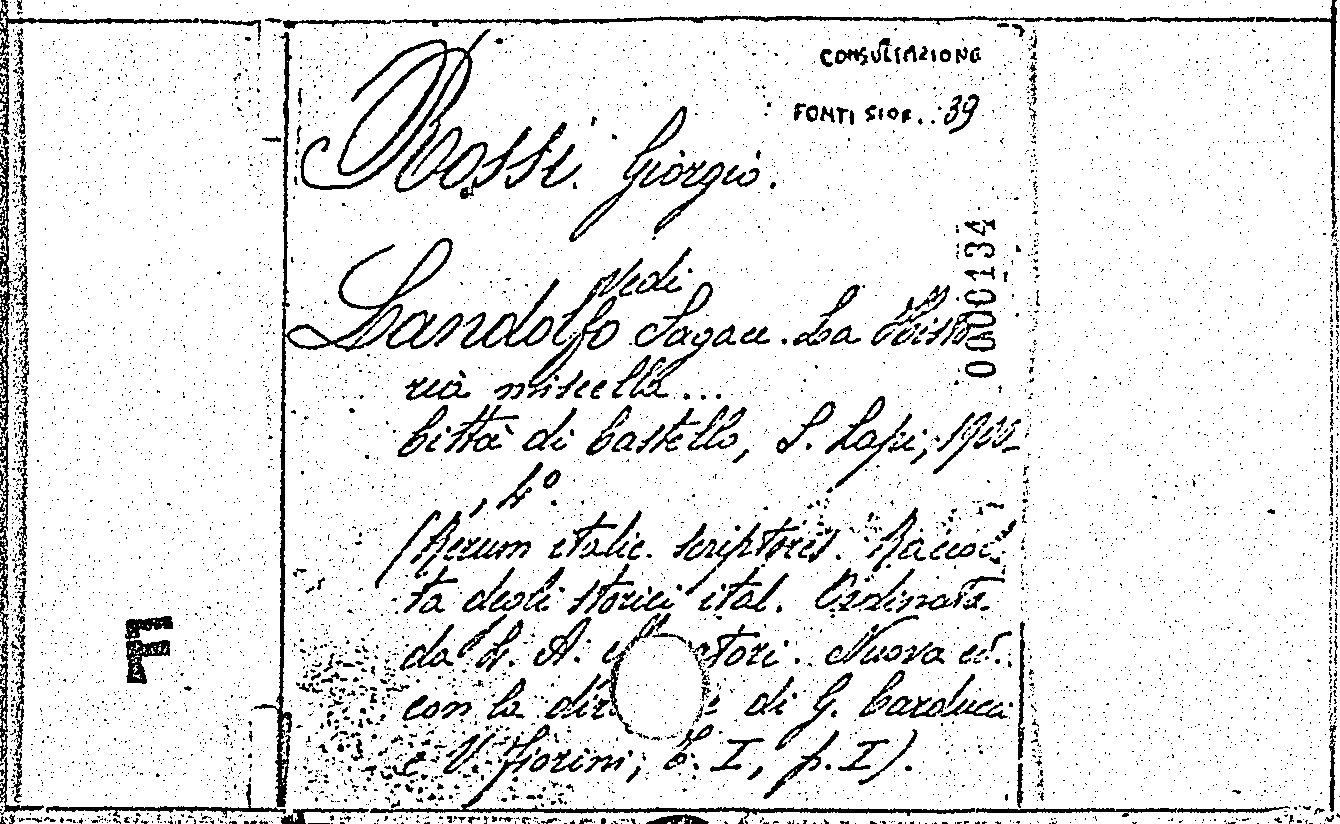 CONSULTAZIONE
FONTI STOR. 39
Rossi Giorgio.
Vedi
Landolfo Sagace. La Histo
ria miscella...
Città di Castello, S. Lapi, 1900-
, 4°.
(Rerum italic. scriptores. Raccol
ta degli storici ital. Ordinata
da L. A. tori. Nuova ed.
con la di G. Carducci
e V. Fiorini, T. I, p. I).
0000134
F